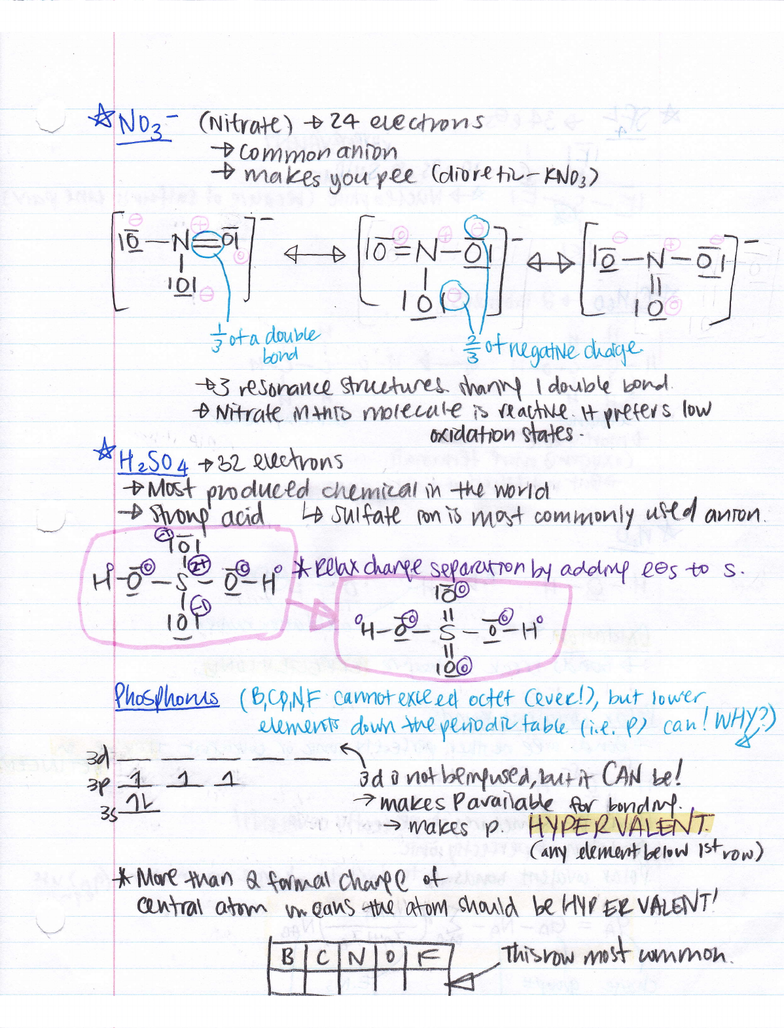 ☆ NO3⁻ (Nitrate) → 24 electrons
→ common anion
→ makes you pee (dioretic - KNO3)
[|O – N = O|]⁻ ↔ [|O = N – O|]⁻ ↔ [|O – N – O|]⁻
|O| |O| |O
1/3 of a double bond
2/3 of negative charge
→ 3 resonance structures. sharing 1 double bond.
→ Nitrate in this molecule is reactive. It prefers low
oxidation states.
☆ H2SO4 → 32 electrons
→ Most produced chemical in the world
→ strong acid ↳ sulfate ion is most commonly used anion.
|O|
H – O – S – O – H * Relax charge separation by adding e⊖s to S.
|O|
|O
H – O – S – O – H
|O
Phosphorus (B,C,O,N,F cannot exceed octet (ever!), but lower
elements down the periodic table (i.e. P) can! WHY?)
3d
3p 1 1 1
3s 1L
3d is not being used, but it CAN be!
→ makes P available for bonding.
→ makes P. HYPERVALENT.
(any element below 1st row)
* More than 2 formal charge of
central atom means the atom should be HYPERVALENT!
B C N O F
This row most common.